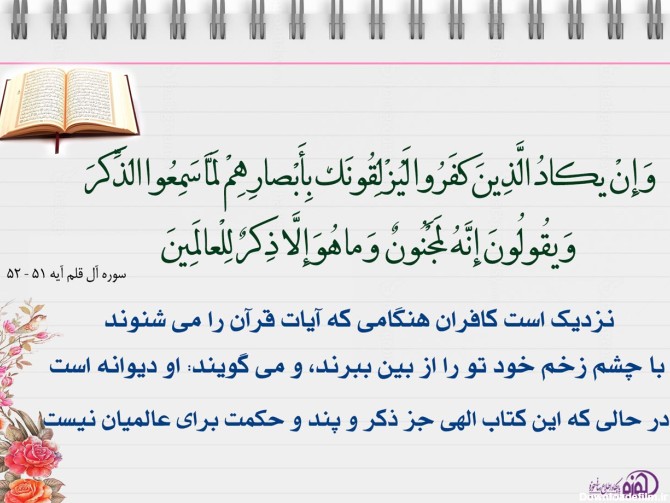 وَإِنْ يَكادُ الَّذِينَ كَفَرُوا لَيُزْلِقُونَكَ بِأَبْصارِهِمْ لَمَّا سَمِعُوا الذِّكْرَ
وَيَقُولُونَ إِنَّهُ لَمَجْنُونٌ وَما هُوَ إِلَّا ذِكْرٌ لِلْعالَمِينَ
سوره آل قلم آیه ۵۱ - ۵۲
نزدیک است کافران هنگامی که آیات قرآن را می شنوند
با چشم زخم خود تو را از بین ببرند، و می گویند: او دیوانه است
در حالی که این کتاب الهی جز ذکر و پند و حکمت برای عالمیان نیست